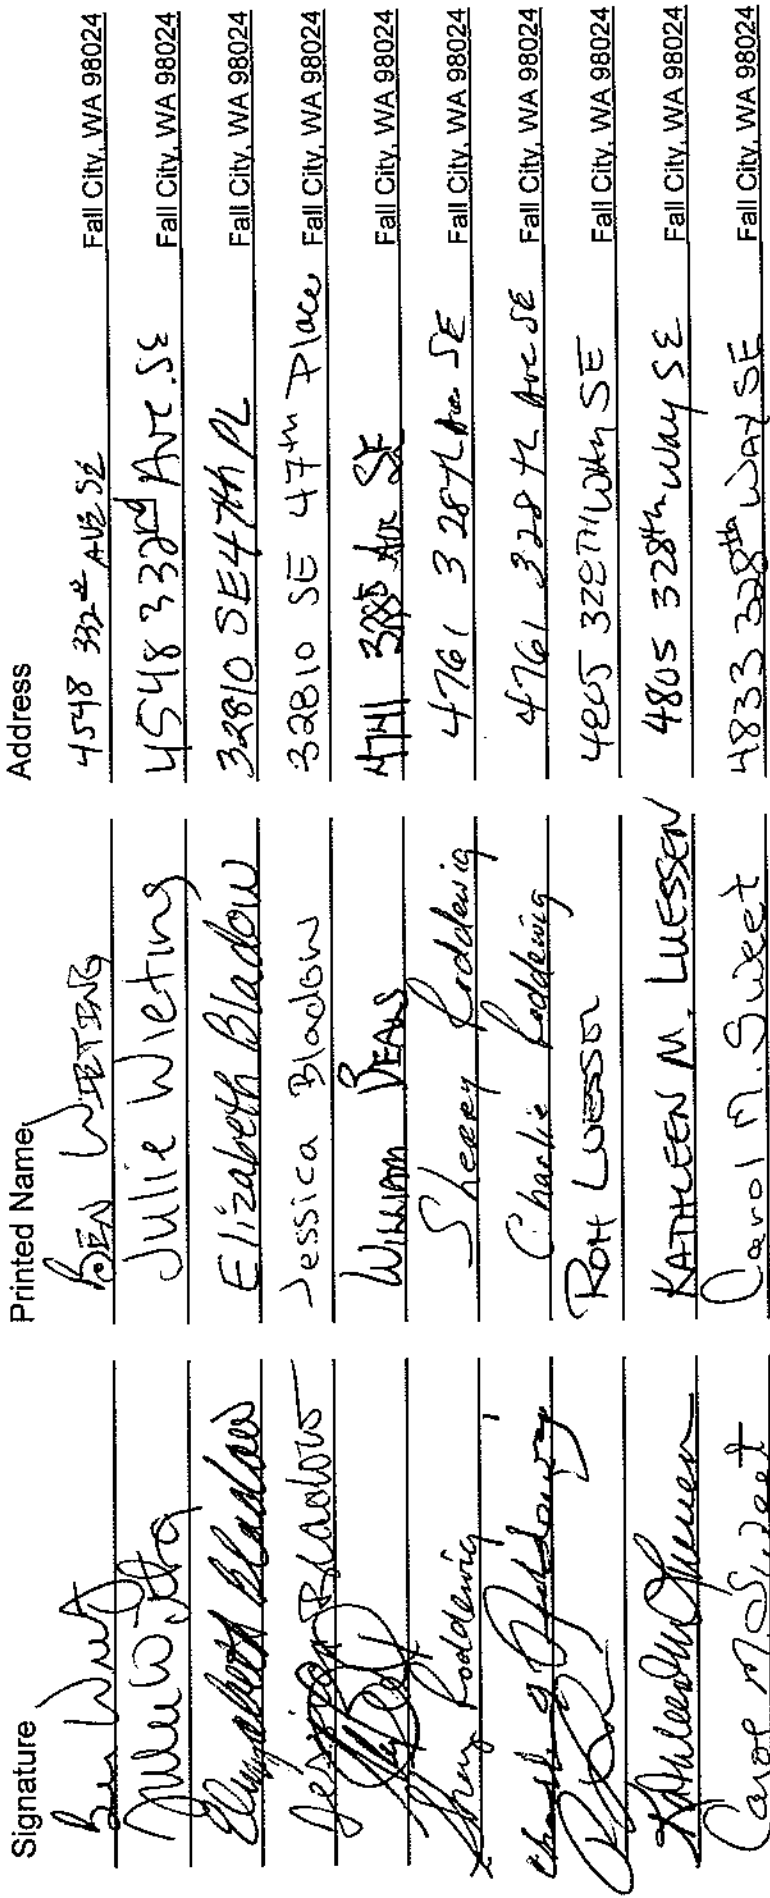 Signature Printed Name Address
Ben Wieting BEN WIETING 4548 332nd AVE SE Fall City, WA 98024
Julie Wieting Julie Wieting 4548 332nd Ave. SE Fall City, WA 98024
Elizabeth Bladow Elizabeth Bladow 32810 SE 47th PL Fall City, WA 98024
Jessica Bladow Jessica Bladow 32810 SE 47th Place Fall City, WA 98024
WILLIAM BEALS 4741 Ave SE Fall City, WA 98024
Sherry Roddewig Sherry Roddewig 4761 328th Ave SE Fall City, WA 98024
Charlie Roddewig 4761 328th Ave SE Fall City, WA 98024
RON LUESSEN 4805 328TH Way SE Fall City, WA 98024
Kathleen M Luessen KATHLEEN M. LUESSEN 4805 328th Way SE Fall City, WA 98024
Carol M Sweet Carol M. Sweet 4833 328th WAY SE Fall City, WA 98024